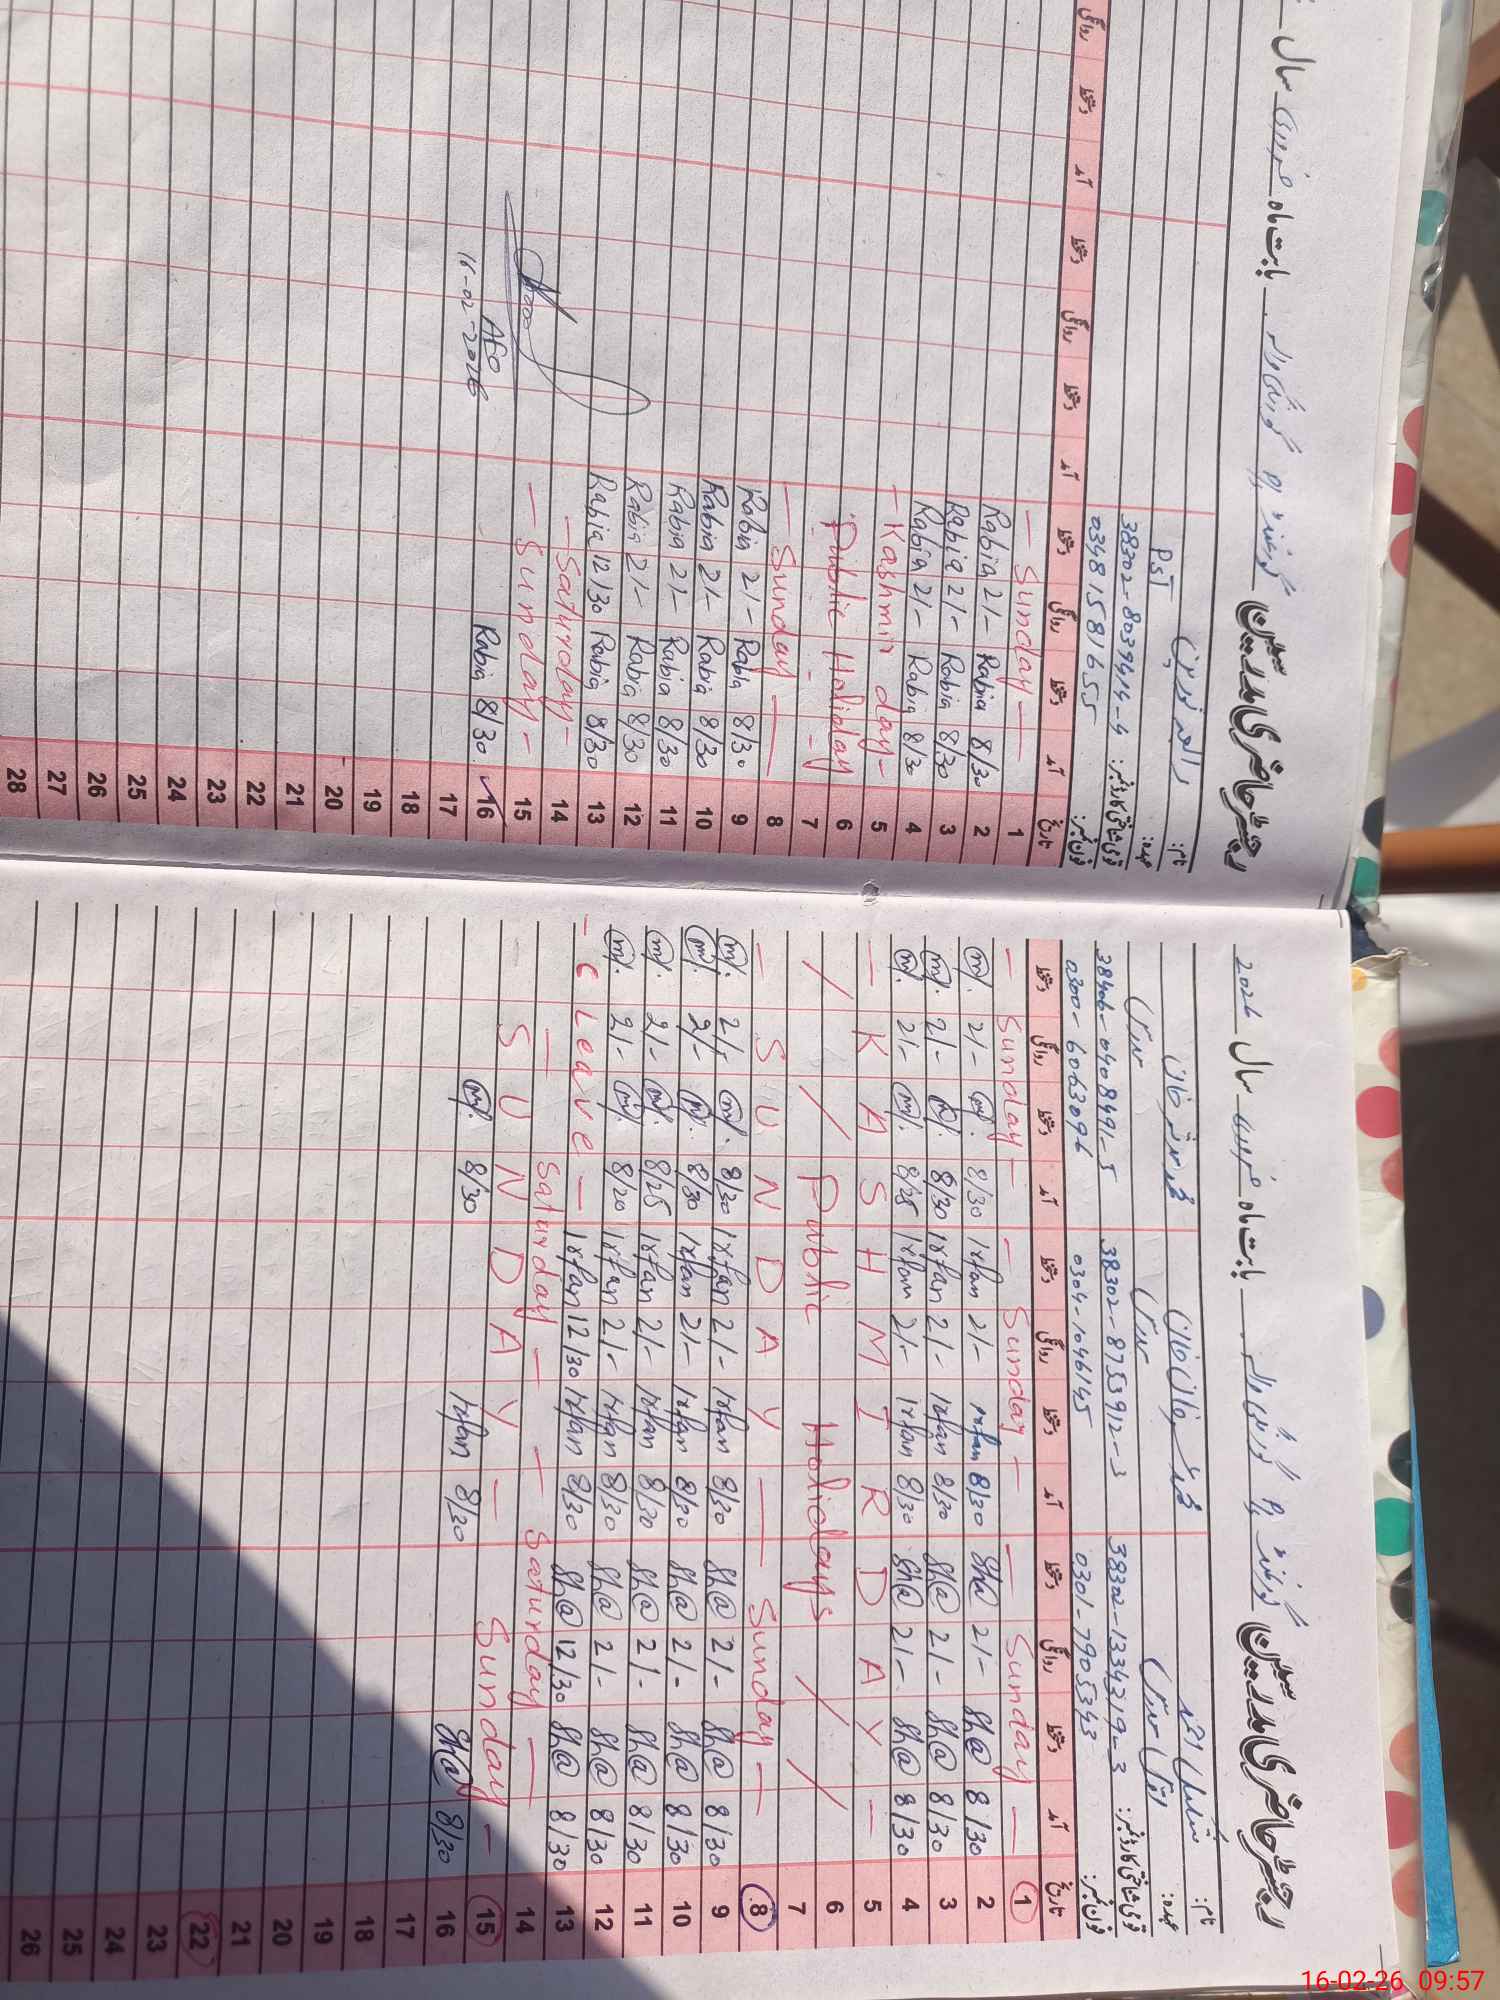 رجسٹر حاضری مدرسین گورنمنٹ P/S بابت ماہ فروری سال
نام:
عہدہ: PST
قومی شناختی کارڈ نمبر: 38302-8039414-4
فون نمبر: 0348 1581655
تاریخ آمد دستخط روانگی دستخط آمد دستخط روانگی دستخط آمد دستخط روانگی
1 — Sunday —
2 8/30 Rabia 2/- Rabia
3 8/30 Rabia 2/- Rabia
4 8/30 Rabia 2/- Rabia
5 - Kashmir day -
6 Public Holiday
7
8 — Sunday —
9 8/30 Rabia 2/- Rabia
10 8/30 Rabia 2/- Rabia
11 8/30 Rabia 2/- Rabia
12 8/30 Rabia 2/- Rabia
13 8/30 Rabia 12/30 Rabia
14 - Saturday -
15 - Sunday -
16 8/30 Rabia
AEO
16-02-2026
17
18
19
20
21
22
23
24
25
26
27
28
رجسٹر حاضری مدرسین گورنمنٹ P/S بابت ماہ فروری سال 2026
نام:
عہدہ:
قومی شناختی کارڈ نمبر: 38302-1334319-3 38302-8753912-3 38406-0408491-5
فون نمبر: 0301-7905343 0304-1046145 0300-6063096
تاریخ آمد دستخط روانگی دستخط آمد دستخط روانگی دستخط آمد دستخط روانگی دستخط
1 — Sunday — — Sunday — — Sunday —
2 8/30 Sh@ 2/- Sh@ 8/30 Irfan 2/- Irfan 8/30 2/-
3 8/30 Sh@ 2/- Sh@ 8/30 Irfan 2/- Irfan 8/30 2/-
4 8/30 Sh@ 2/- Sh@ 8/30 Irfan 2/- Irfan 8/25 2/-
5 — KASHMIR DAY —
6 / / Public Holidays / /
7
8 — SUNDAY — — Sunday —
9 8/30 Sh@ 2/- Sh@ 8/30 Irfan 2/- Irfan 8/30 2/-
10 8/30 Sh@ 2/- Sh@ 8/30 Irfan 2/- Irfan 8/30 2/-
11 8/30 Sh@ 2/- Sh@ 8/30 Irfan 2/- Irfan 8/25 2/-
12 8/30 Sh@ 2/- Sh@ 8/30 Irfan 2/- Irfan 8/20 2/-
13 8/30 Sh@ 12/30 Sh@ 8/30 Irfan 12/30 Irfan - C Leave -
14 — Saturday — — Saturday —
15 SUNDAY — Sunday -
16 8/30 Sh@ 8/30 Irfan 8/30
17
18
19
20
21
22
23
24
25
26
16-02-26 09:57